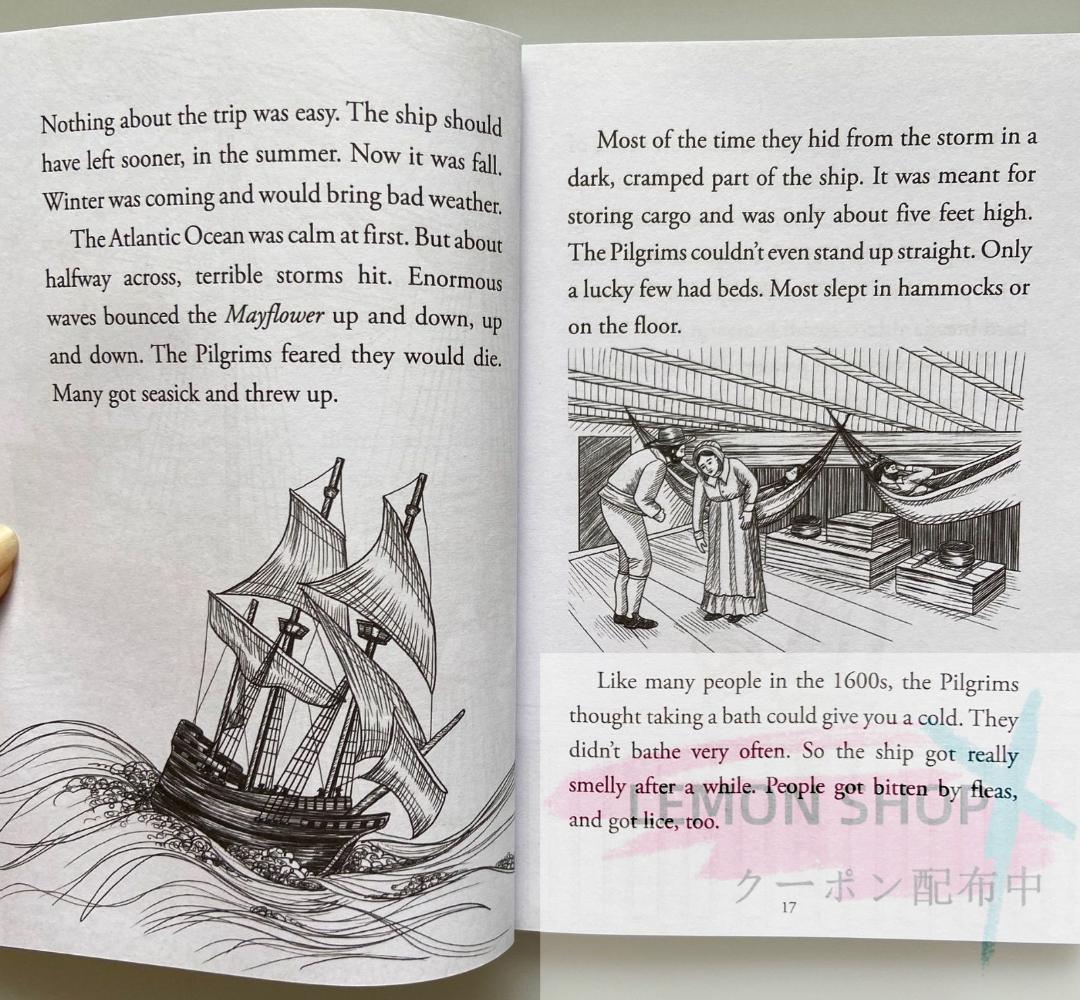 Nothing about the trip was easy. The ship should
have left sooner, in the summer. Now it was fall.
Winter was coming and would bring bad weather.
The Atlantic Ocean was calm at first. But about
halfway across, terrible storms hit. Enormous
waves bounced the Mayflower up and down, up
and down. The Pilgrims feared they would die.
Many got seasick and threw up.
Most of the time they hid from the storm in a
dark, cramped part of the ship. It was meant for
storing cargo and was only about five feet high.
The Pilgrims couldn't even stand up straight. Only
a lucky few had beds. Most slept in hammocks or
on the floor.
Like many people in the 1600s, the Pilgrims
thought taking a bath could give you a cold. They
didn't bathe very often. So the ship got really
smelly after a while. People got bitten by fleas,
and got lice, too.
LEMON SHOP
クーポン配布中
17